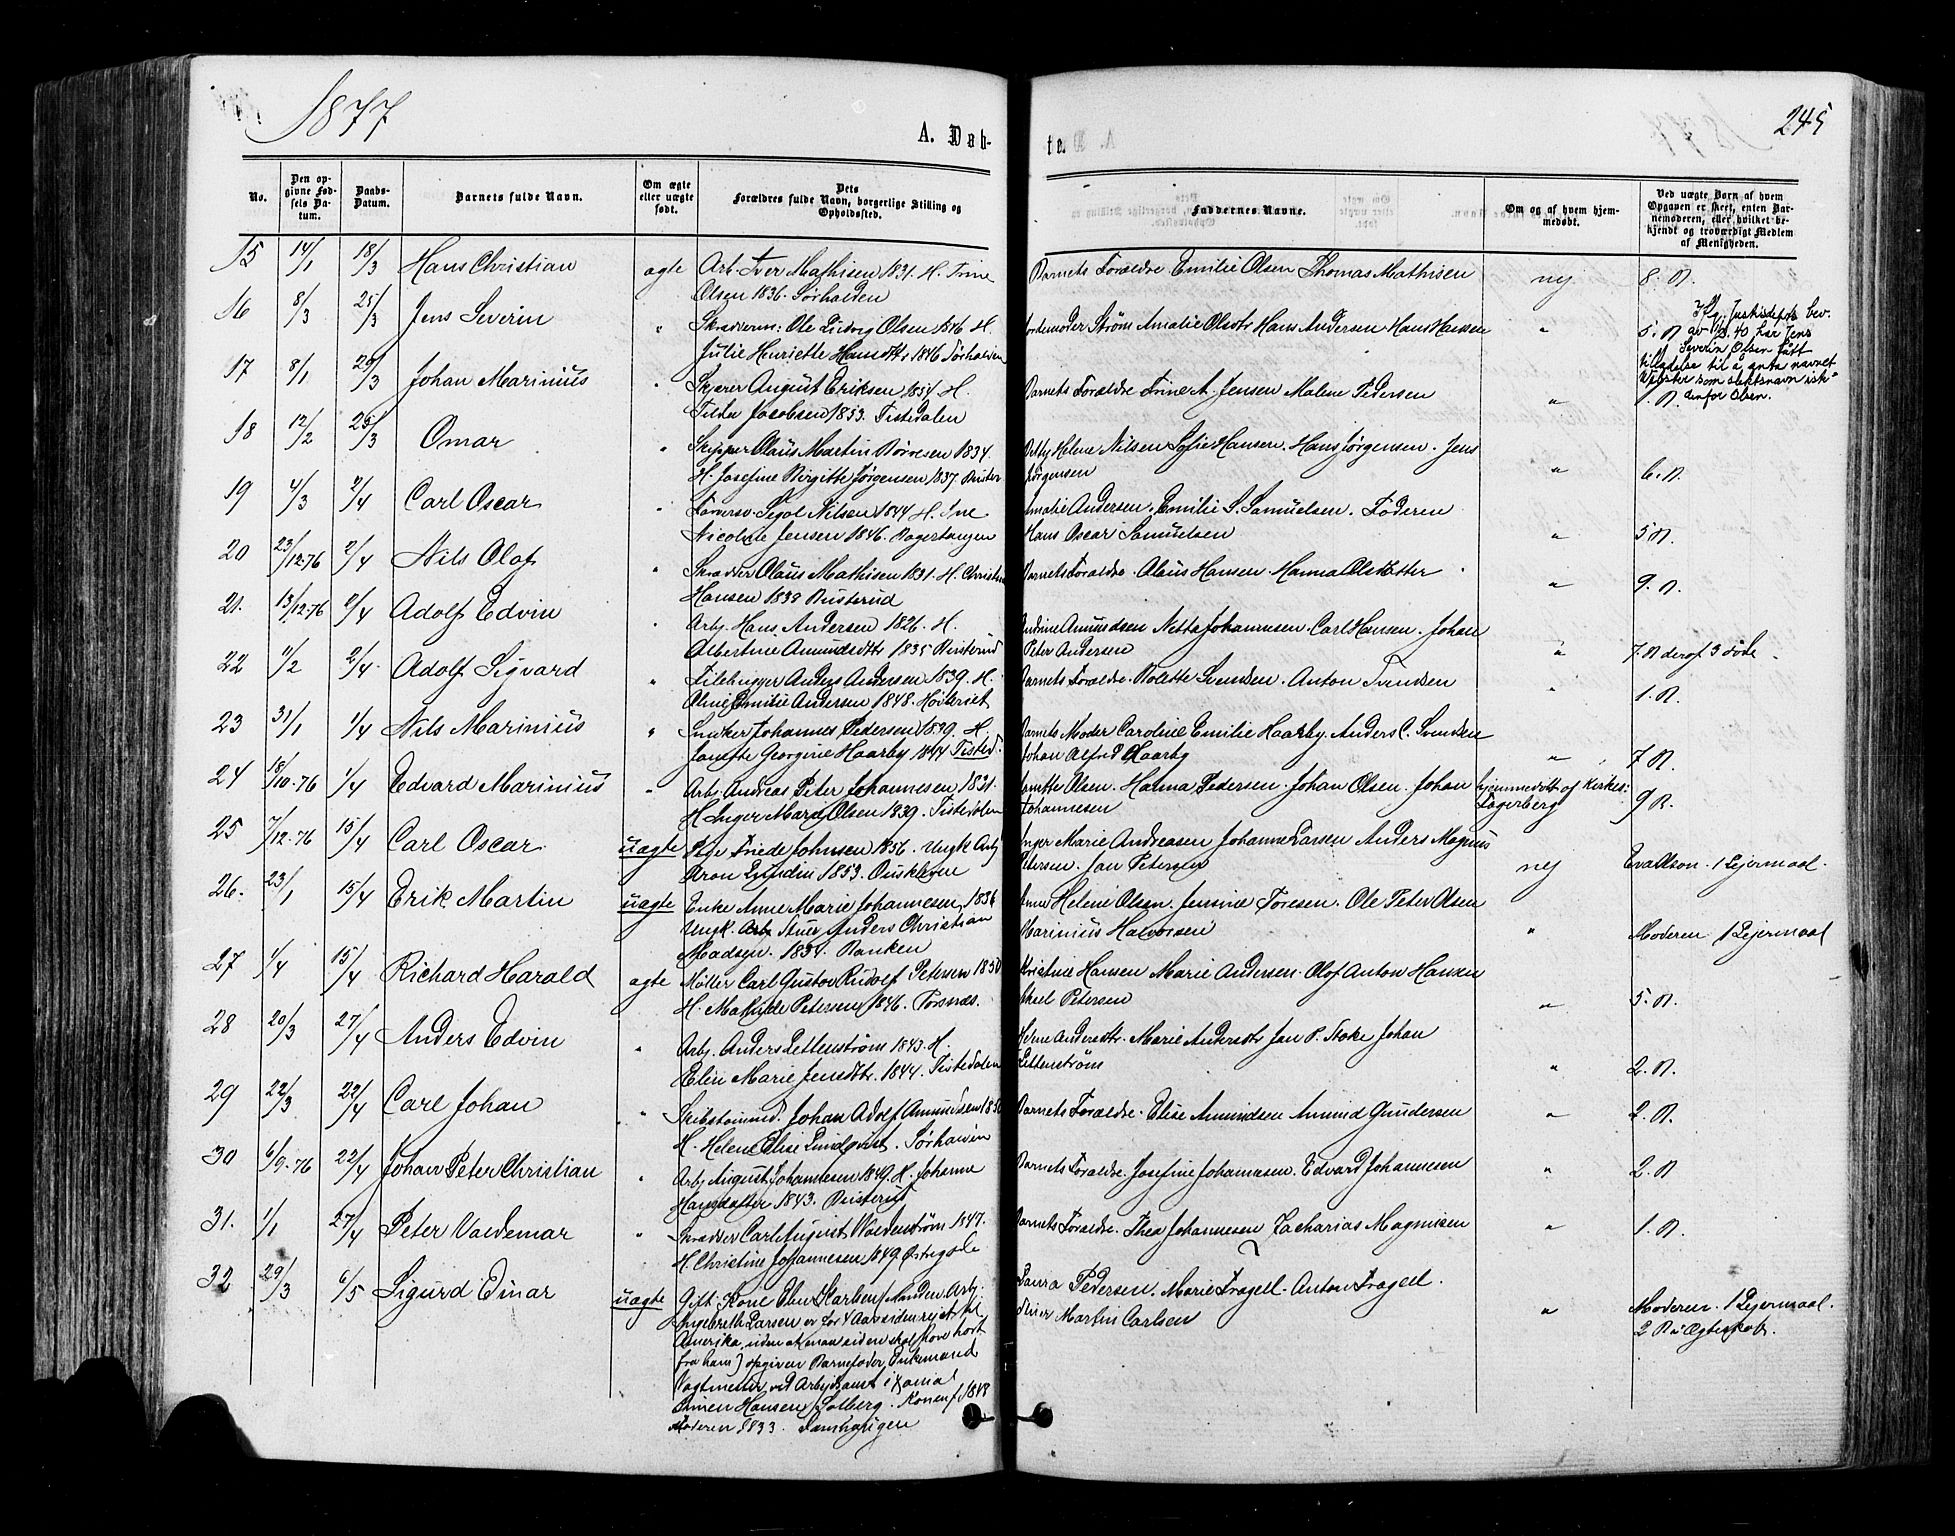 1877
A. Døb-
te.
245
No.
Den op-
givne Fød-
sels Da-
tum.
Daabs-
Datum.
Barnets fulde Navn.
Om ægte
eller uægte
født.
Dets
Forældres fulde Navn, borgerlige Stilling og
Opholdssted.
Faddernes Navne.
Om og af hvem hjem-
medøbt.
Ved uægte Børn af hvem
Opgaven er skeet, enten Bar-
nemoderen, eller hvilket be-
kjendt og troværdigt Medlem
af Menigheden.
15 14/1 18/3 Hans Christian ægte Arb. Iver Mathisen 1831. H. Trine
Olsen 1836. Sørhalden
Barnets Forældre Emilie Olsen Thomas Mathisen nej 8. B.
16 8/3 25/3 Jens Severin " Ole Ludvig Olsen 1846 H.
Julie Henriette Hansdtr 1846 Sørhalden
Jordemoder Strøm Amalie Olsdtr Hans Andersen Hans Hansen " 5. B
Ifg. Justisdepts bev.
av 40 har Jens
Severin Olsen fått
tilladelse til å anta navnet
som slektsnavn ist-
denfor Olsen.
17 8/1 25/3 Johan Marinius " August Eriksen 1854 H.
Jacobsen 1853. Tistedalen
Barnets Forældre Trine A. Jensen Malene Pedersen " 1. B.
18 12/2 25/3 Omar " Skipper Olaus Martin Børresen 1834.
H. Josefine Birgitte Jørgensen 1837
Betty Helene Nilsen Sofie Hansen. Hans Jørgensen. Jens
Jørgensen " 6. B.
19 4/3 2/4 Carl Oscar " Nilsen 1844 H. Ine
Nicoline Jensen 1846.
Amalie Andersen. Emilie S. Samuelsen. Faderen
Hans Oscar Samuelsen " 5 B.
20 23/12-76 2/4 Nils Olaf " Skrædder Olaus Mathisen 1831. H. Christine
Hansen 1839 Busterud
Barnets Forældre. Olaus Hansen. Hanna Olsdatter " 9. B.
21. 13/12-76 2/4 Adolf Edvin " Arbj. Hans Andersen 1826. H.
Albertine Amundsdtr 1835 Busterud
Andrine Amundsen Netta Johannesen. Carl Hansen. Johan
Peter Andersen " 7. B deraf 3 døde
22 11/2 2/4 Adolf Sigvard " Anders Andersen 1839. H.
Emilie Andersen 1848.
Barnets Forældre. Bolette Svendsen. Anton Svendsen " 1. B.
23 31/1 1/4 Nils Marinius " Snedker Johannes Pedersen 1839. H
Georgine Haarby 1844 Tisted.
Barnets Moder Caroline Emilie Haarby. Anders C. Svendsen
Johan Alfred Haarby " 7 B.
24 18/10-76 1/4 Edvard Marinius " Arbj. Andreas Peter Johannesen 1831.
H. Inger Marie Olsen 1839. Tistedalen
Olsen. Hanna Pedersen. Johan Olsen. Johan
Johannesen hjemmedøbt af Kirkes.
Fagerberg 9 B.
25 7/12-76 15/4 Carl Oscar uægte Pige Johnsen 1856. Ungk. Arbj
Aron Lundin 1853.
Inger Marie Andreasen Johanne Larsen Anders Magnus
Petersen. Jan Petersen nej 1 Lejermaal.
26. 23/1 15/4 Erik Martin uægte Enke Anne Marie Johannesen 1836
Ungk. Anders Christian
Madsen. 1834. Banken
Anne Helene Olsen. Jensine Toresen. Ole Peter Olsen
Marinius Halvorsen " Moderen 1 Lejermaal
27 1/4 15/4 Richard Harald ægte Møller Carl Gustav Rudolf Petersen 1850
H. Mathilde Petersen 1846. Torsnæs.
Kristine Hansen Marie Andersen. Olof Anton Hansen
Petersen " 5. B.
28 20/3 27/4 Anders Edvin " Arbj. Anders Lettenstrøm 1843. H.
Elin Marie Jensdtr. 1844. Tistedalen
Helene Andersdtr. Marie Andersdtr Jan P. Stoke Johan
Lettenstrøm " 2. B.
29 22/3 22/4 Carl Johan " Skibstømmd. Johan Adolf Amundsen 1850
H. Helene Elise Lundqvist. Sørhalden
Barnets Forældre. Elise Amundsen Amund Gundersen " 2. B.
30 6/9-76 22/4 Johan Peter Christian " Arbj August Johannesen 1849. H. Johanne
Hansdatter 1843. Busterud
Barnets Forældre. Josefine Johannesen. Edvard Johannesen " 2. B
31. 1/1 27/4 Peter Valdemar " Skrædder Carl August Valdenstrøm 1847.
H. Christine Johannesen 1849
Barnets Forældre. Thea Johannesen Zacharias Magnusen " 1. B.
32 29/3 6/5 Sigurd Einar uægte Gift Kone Karlsen (Manden Arb.
Ingebreth Larsen er for 4 Aar siden rejst til
Amerika, uden at man siden skal have hørt
fra ham) opgiven Barnefader, Enkemand
Vagtmester ved
Hansen Solberg. Konen f 1848
Moderen 1833.
Laura Pedersen. Marie Tragell. Anton Tragell.
Martin Carlsen " Moderen. 1 Lejermaal.
2 B i Ægteskab.